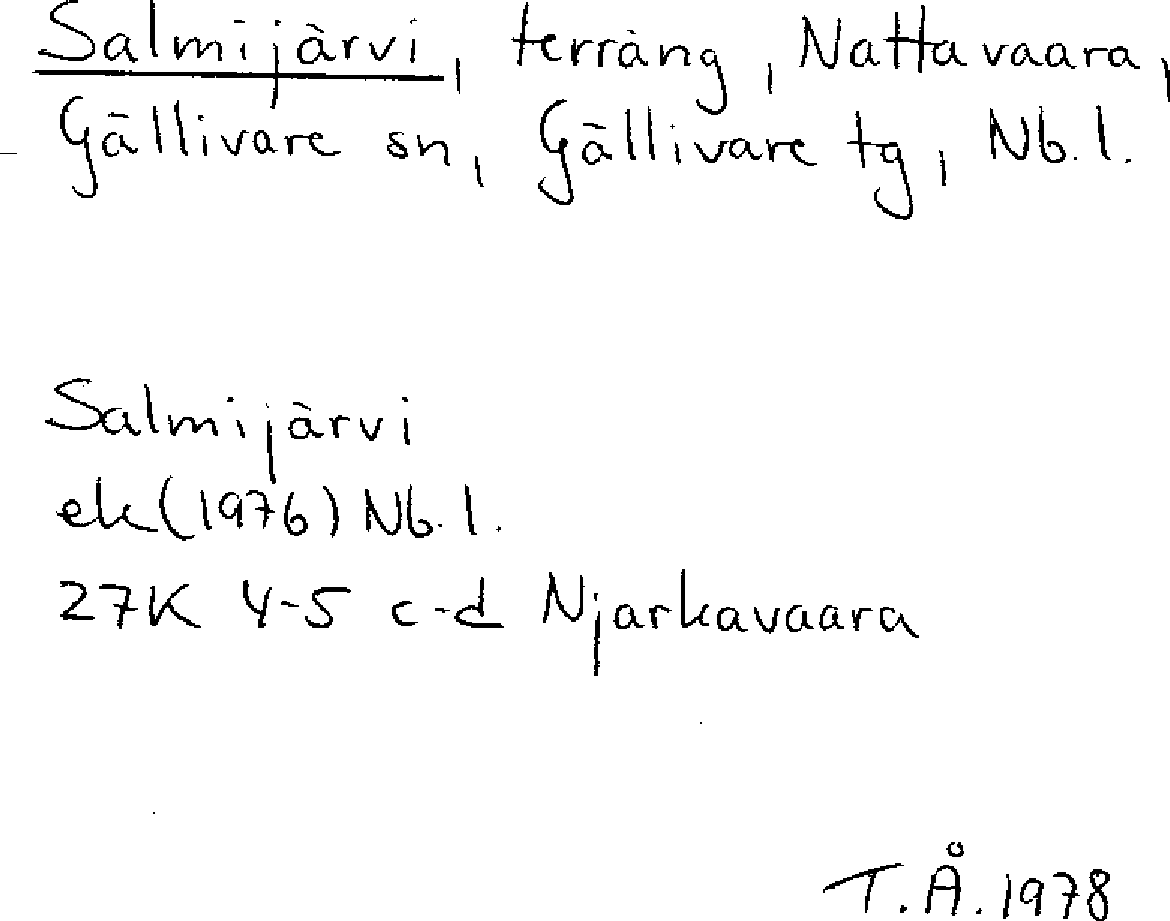 Salmijärvi, terräng, Nattavaara,
Gällivare sn, Gällivare tg, Nb. l.
Salmijärvi
ek (1976) Nb. l.
27K 4-5 c-d Njarkavaara
T. Å. 1978